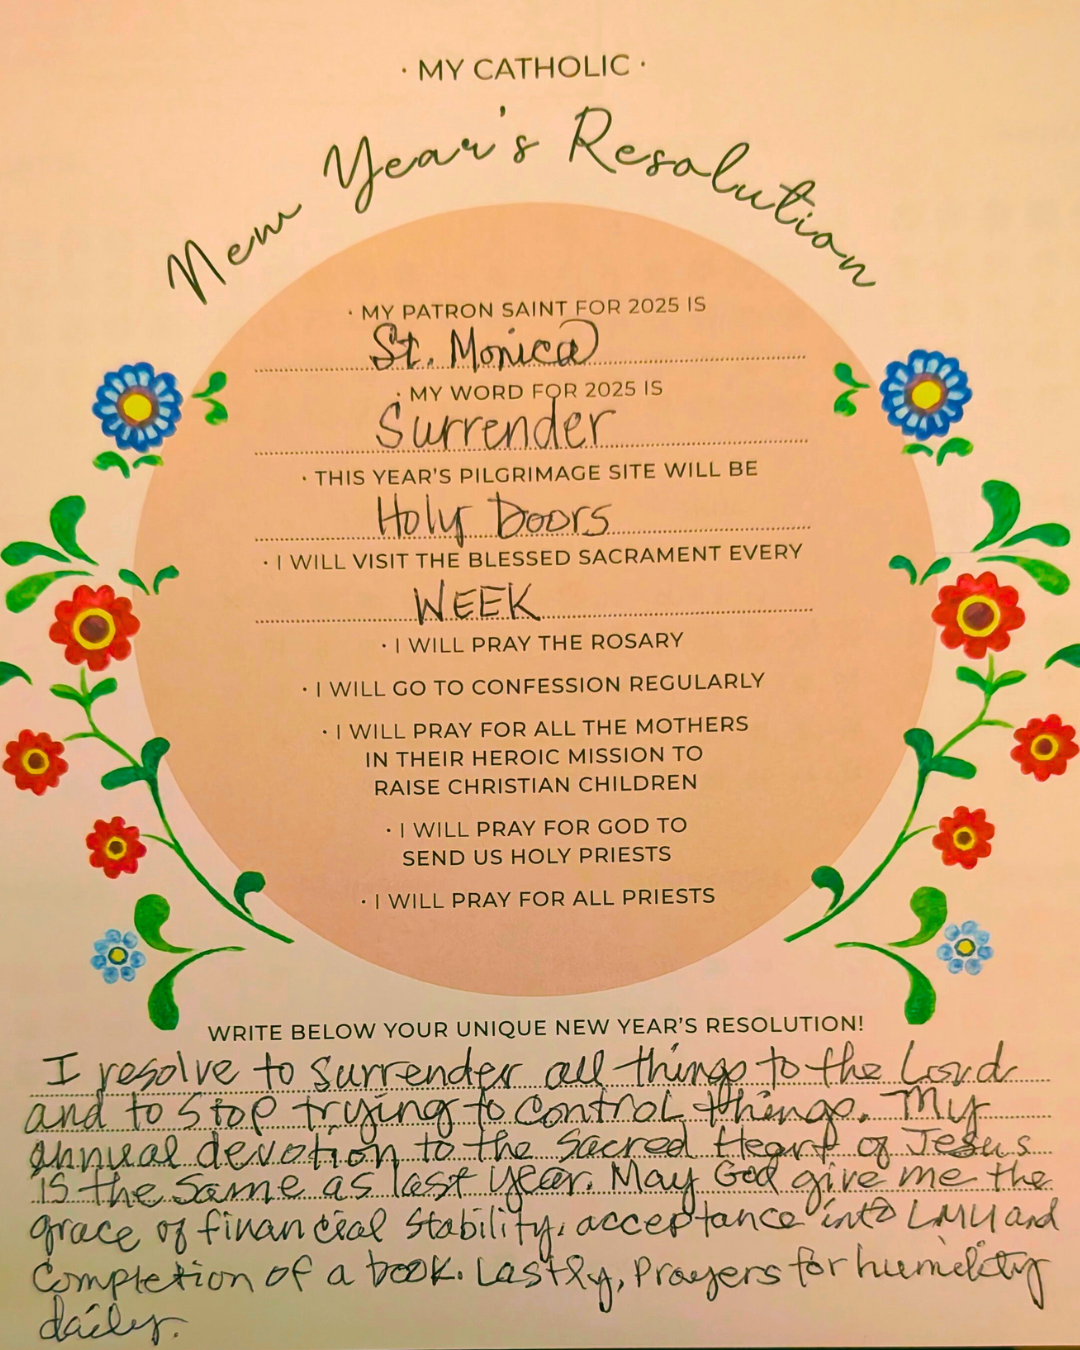 · MY CATHOLIC ·
New Year's Resolution
· MY PATRON SAINT FOR 2025 IS
St. Monica
· MY WORD FOR 2025 IS
Surrender
· THIS YEAR'S PILGRIMAGE SITE WILL BE
Holy Doors
· I WILL VISIT THE BLESSED SACRAMENT EVERY
WEEK
· I WILL PRAY THE ROSARY
· I WILL GO TO CONFESSION REGULARLY
· I WILL PRAY FOR ALL THE MOTHERS
IN THEIR HEROIC MISSION TO
RAISE CHRISTIAN CHILDREN
· I WILL PRAY FOR GOD TO
SEND US HOLY PRIESTS
· I WILL PRAY FOR ALL PRIESTS
WRITE BELOW YOUR UNIQUE NEW YEAR'S RESOLUTION!
I resolve to surrender all things to the Lord
and to stop trying to control things. My
annual devotion to the Sacred Heart of Jesus
is the same as last year. May God give me the
grace of financial stability, acceptance into LMU and
completion of a book. Lastly, Prayers for humility
daily.